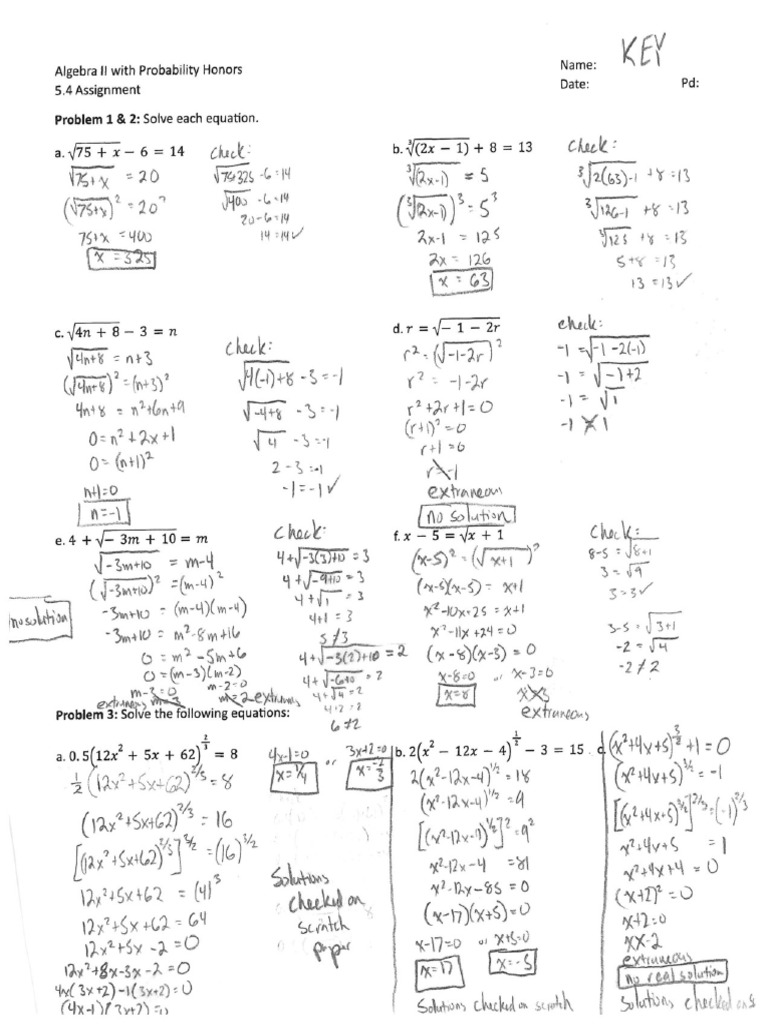 KEY
Algebra II with Probability Honors
Name:
5.4 Assignment
Date: Pd:
Problem 1 & 2: Solve each equation.
a. √(75 + x) − 6 = 14
check:
√(75+x) = 20
(√(75+x))² = 20²
75+x = 400
x = 325
√(75+325) -6=14
√400 -6=14
20-6=14
14=14✓
b. ∛(2x − 1) + 8 = 13
check:
∛(2x-1) = 5
(∛(2x-1))³ = 5³
2x-1 = 125
2x = 126
x = 63
∛(2(63)-1) +8=13
∛(126-1) +8=13
∛125 +8=13
5+8=13
13=13✓
c. √(4n + 8) − 3 = n
check:
√(4n+8) = n+3
(√(4n+8))² = (n+3)²
4n+8 = n²+6n+9
0=n²+2x+1
0=(n+1)²
n+1=0
n=-1
√(4(-1)+8) -3=-1
√(-4+8) -3=-1
√4 -3=-1
2-3=-1
-1=-1✓
d. r = √(− 1 − 2r)
check:
r² = (√(-1-2r))²
r² = -1-2r
r²+2r+1=0
(r+1)²=0
r+1=0
r=-1
extraneous
no solution
-1 = √(-1-2(-1))
-1 = √(-1+2)
-1 = √1
-1 ≠ 1
e. 4 + √(− 3m + 10) = m
check:
√(-3m+10) = m-4
(√(-3m+10))² = (m-4)²
-3m+10 = (m-4)(m-4)
no solution
-3m+10 = m²-8m+16
0 = m²-5m+6
0=(m-3)(m-2)
m-3=0 m-2=0
extraneous m=3 m=2 extraneous
4+√(-3(3)+10) = 3
4+√(-9+10) = 3
4+√1 = 3
4+1 = 3
5≠3
4+√(-3(2)+10) = 2
4+√(-6+10) = 2
4+√4 = 2
4+2 = 2
6≠2
f. x − 5 = √(x + 1)
check:
(x-5)² = (√(x+1))²
(x-5)(x-5) = x+1
x²-10x+25 = x+1
x²-11x+24=0
(x-8)(x-3) = 0
x-8=0 or x-3=0
x=8 x=3
extraneous
8-5=√(8+1)
3=√9
3=3✓
3-5=√(3+1)
-2=√4
-2≠2
Problem 3: Solve the following equations:
a. 0.5(12x² + 5x + 62)^(2/3) = 8
½(12x²+5x+62)^(2/3) = 8
(12x²+5x+62)^(2/3) = 16
[(12x²+5x+62)^(2/3)]^(3/2) = (16)^(3/2)
12x²+5x+62 = (4)³
12x²+5x+62 = 64
12x²+5x-2=0
12x²+8x-3x-2=0
4x(3x+2)-1(3x+2)=0
(4x-1)(3x+2)=0
4x-1=0 or 3x+2=0
x=1/4 x=-2/3
Solutions
checked on
scratch
paper
b. 2(x² − 12x − 4)^(1/2) − 3 = 15
2(x²-12x-4)^(1/2) = 18
(x²-12x-4)^(1/2) = 9
[(x²-12x-4)^(1/2)]² = 9²
x²-12x-4 = 81
x²-12x-85=0
(x-17)(x+5)=0
x-17=0 or x+5=0
x=17 x=-5
Solutions checked on scratch
c. (x²+4x+5)^(3/2)+1=0
(x²+4x+5)^(3/2) = -1
[(x²+4x+5)^(3/2)]^(2/3) = (-1)^(2/3)
x²+4x+5 = 1
x²+4x+4=0
(x+2)²=0
x+2=0
x=-2
extraneous
no real solution
Solutions checked on s